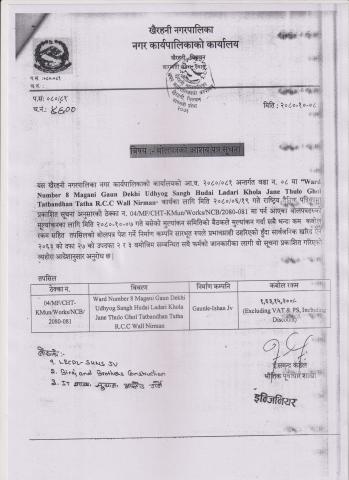 खैरहनी नगरपालिका
नगर कार्यपालिकाको कार्यालय
खैरहनी, चितवन
प.सं: ०८०/८१
च.नं: ५६००
मिति : २०८०-१०-०८
विषय :- बोलपत्रको आशय पत्र सूचना
यस खैरहनी नगरपालिका नगर कार्यपालिकाको कार्यालयको आ.व. २०८०/०८१ अन्तर्गत वडा नं. ०८ मा "Ward
Number 8 Magani Gaun Dekhi Udhyog Sangh Hudai Ladari Khola Jane Thulo Ghol
Tatbandhan Tatha R.C.C Wall Nirman" कार्यका लागि मिति २०८०/०६/१९ गते राष्ट्रिय दैनिक पत्रिका
प्रकाशित सूचना अनुसारको ठेक्का नं. 04/MP/CHT-KMun/Works/NCB/2080-081 मा पर्न आएका बोलपत्रहरु
मूल्यांकनका लागि मिति २०८०-१०-०७ गते बसेको मुल्यांकन समितिको बैठकले मूल्यांकन गर्दा सबै भन्दा कम कबोल
रकम सहित तपसिलको बोलपत्र पेश गर्ने निर्माण कम्पनि सारभूत रुपले प्रभावग्राही ठहरिएको हुँदा सार्वजनिक खरिद ऐन
२०६३ को दफा २७ को उपदफा २ र ३ बमोजिम सम्बन्धित सबै फर्मको जानकारीका लागी यो सूचना प्रकाशित गरिएको
व्यहोरा आदेशानुसार अनुरोध छ।
तपसिल
ठेक्का नं. विवरण निर्माण कम्पनि कबोल रकम
04/MP/CHT-KMun/Works/NCB/2080-081
Ward Number 8 Magani Gaun Dekhi
Udhyog Sangh Hudai Ladari Khola
Jane Thulo Ghol Tatbandhan Tatha
R.C.C Wall Nirman
Gaunle-Ishan Jv
(Excluding VAT & PS, Including Discount)
Birāj and Brothers Construction
इन्जिनियर